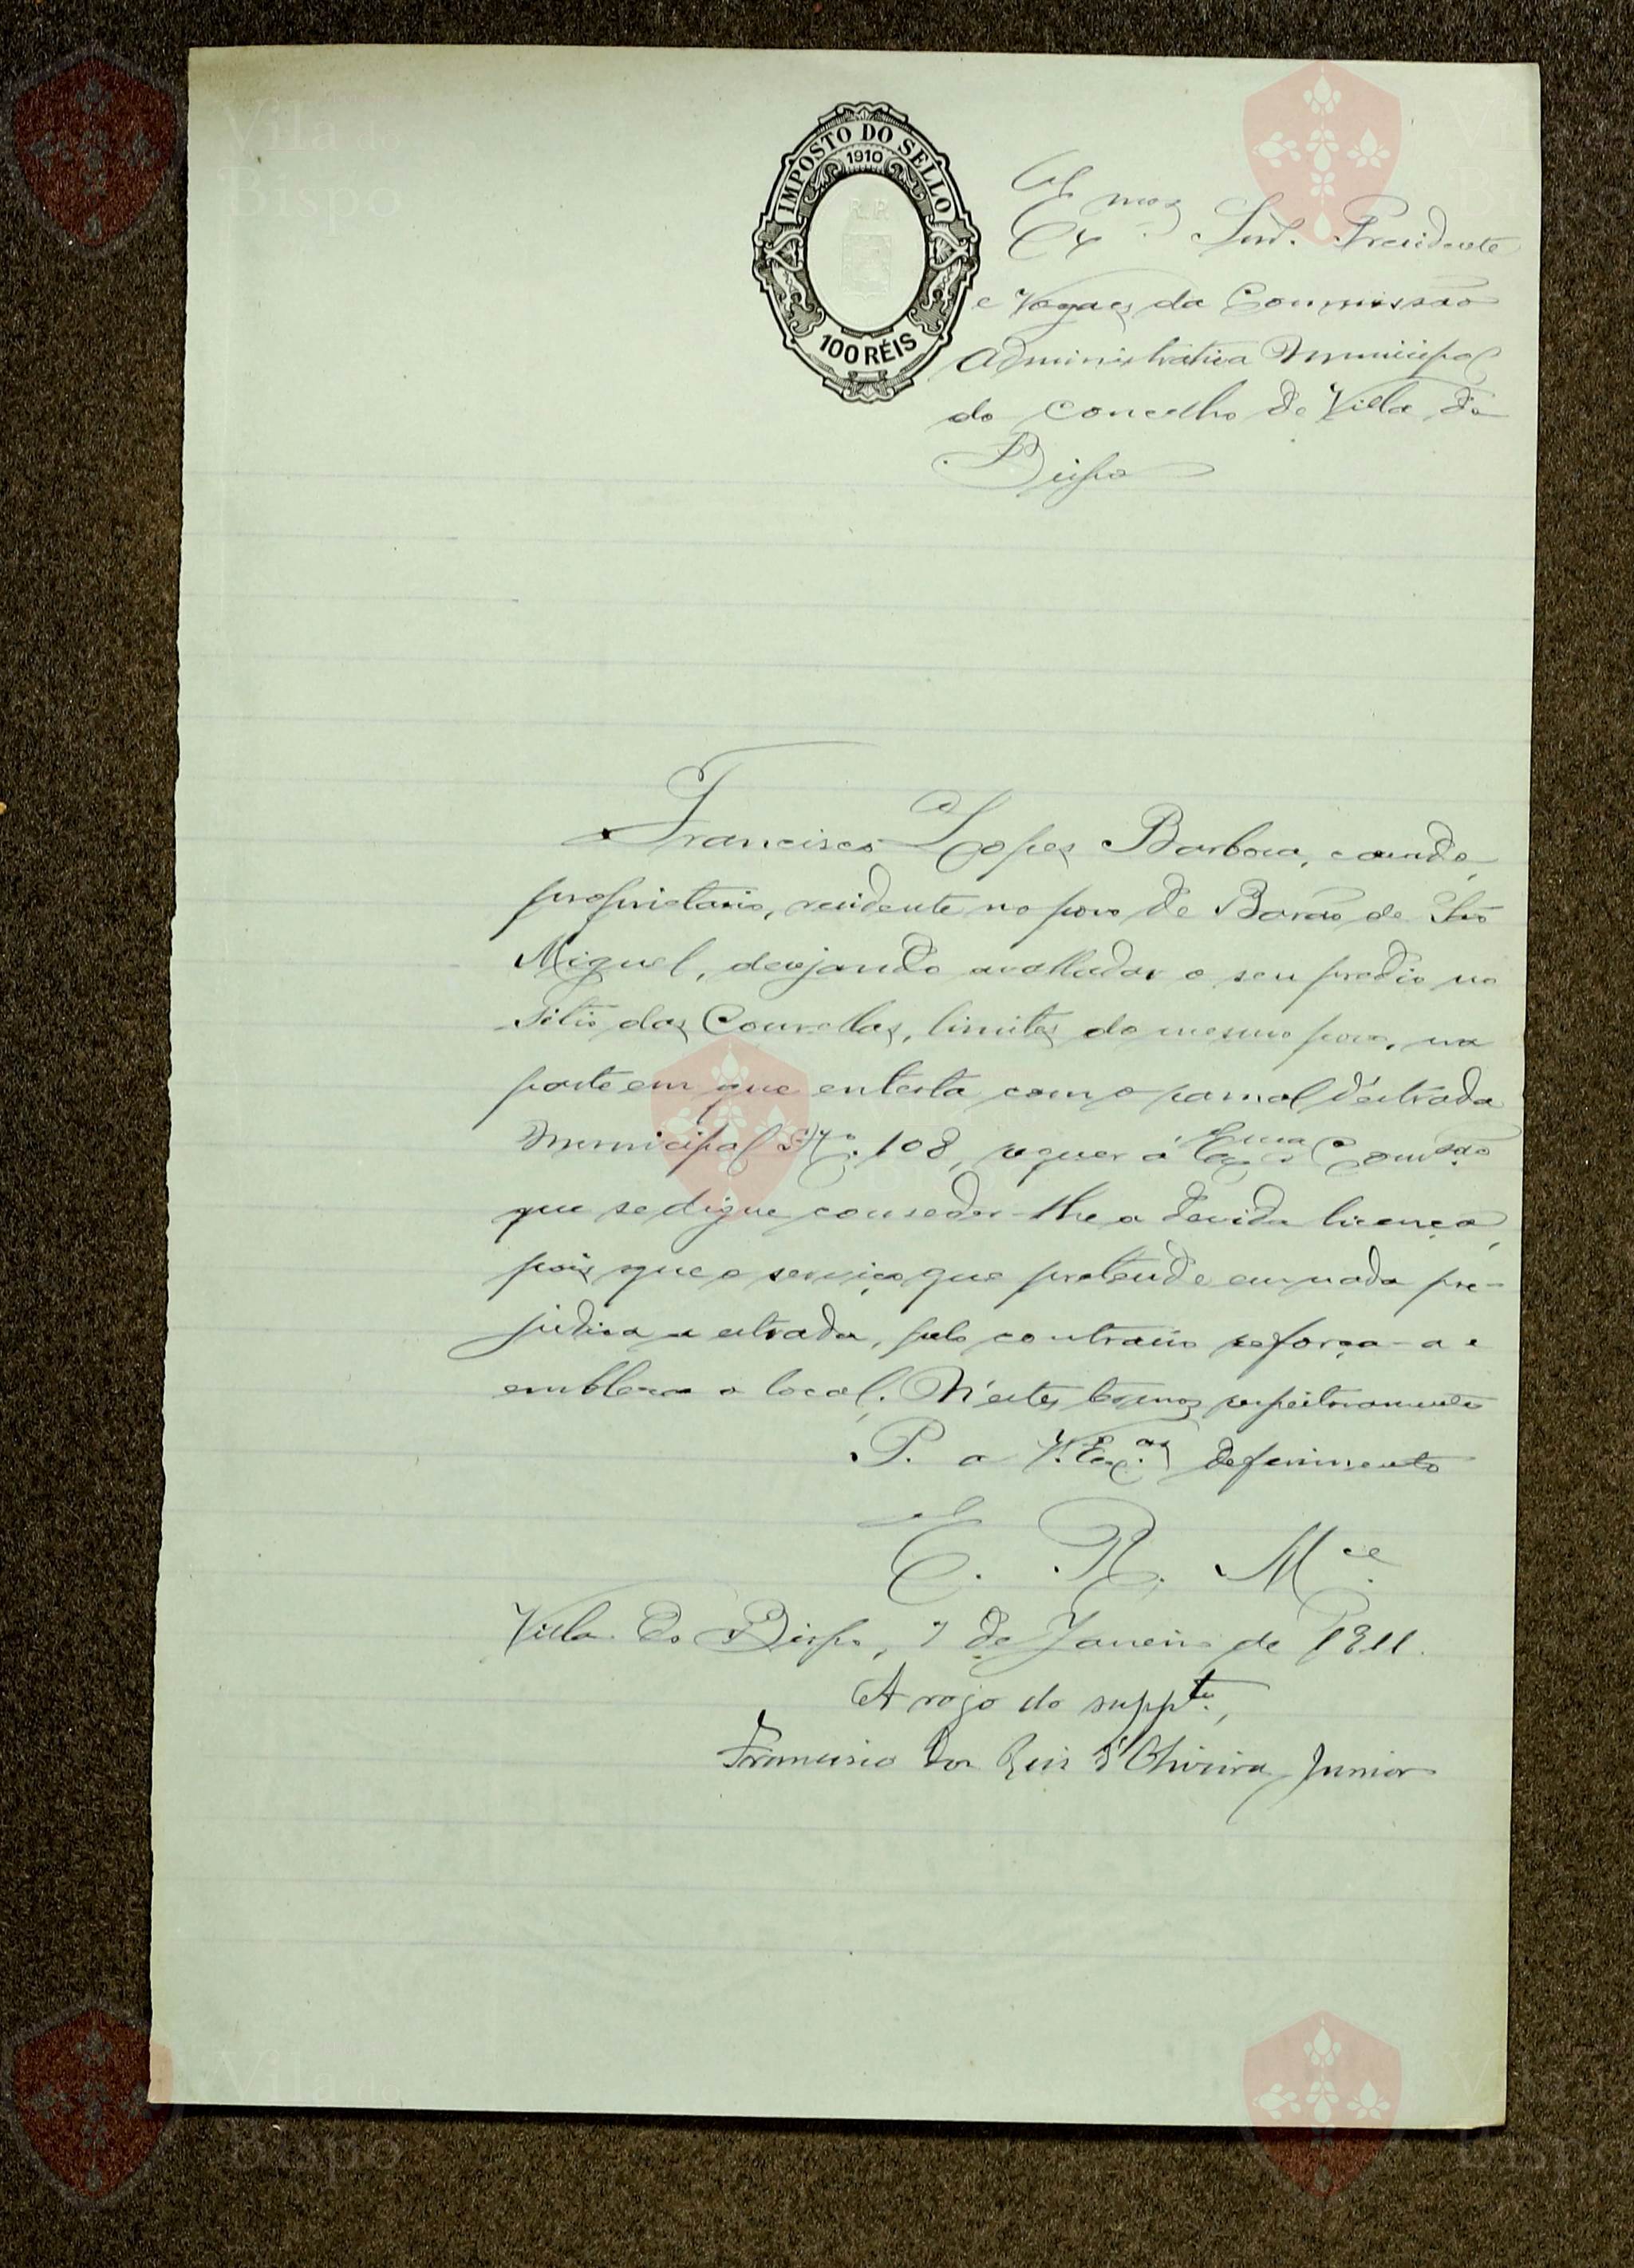 IMPOSTO DO SELLO
1910
R.P.
100 RÉIS
Ex.mos Snrs. Presidente
e Vogaes da Commissão
Administrativa Municipal
do concelho de Villa do
Bispo
Francisco Lopes Barbosa, casado,
proprietario, residente no povo de Barão de São
Miguel, desejando avalladar o seu predio no
sitio das Courellas, limites do mesmo povo, na
parte em que entesta com o ramal d'estrada
Municipal N.º 108, requer á Ex.ma Com.são
que se digne conseder-lhe a devida licença,
pois que o serviço que pretende em nada pre-
judica a estrada, pelo contrario reforça-a e
embleza o local. N'estes termos respeitosamente
P. a V. Ex.as deferimento
E. R. M.ce
Villa do Bispo, 7 de Janeiro de 1911.
A rogo do suppte.,
Francisco dos Reis d'Oliveira Junior
Vila do
Bispo
Vila do
Bispo